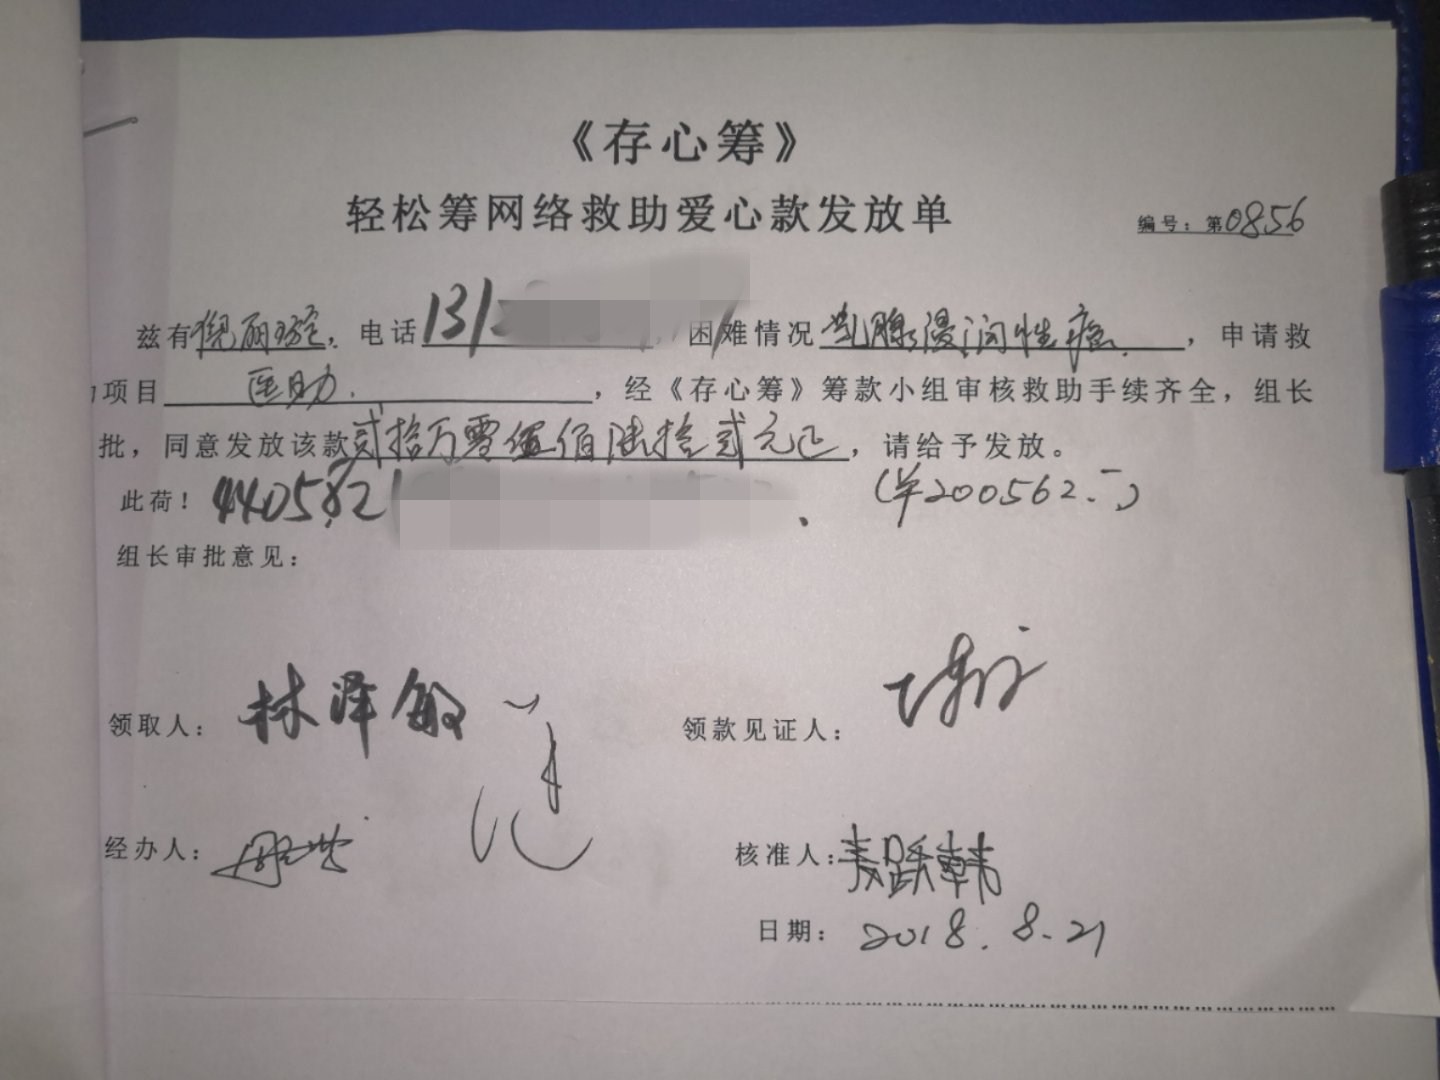 《存心筹》
轻松筹网络救助爱心款发放单
编号：第0856
兹有倪丽璇，电话131 困难情况乳腺浸润性癌，申请救
项目 医助．，经《存心筹》筹款小组审核救助手续齐全，组长
批，同意发放该款贰拾万零伍佰陆拾贰元正，请给予发放。
此荷！4405821 (￥200562.-)
组长审批意见：
领取人：林泽敏 领款见证人：
经办人： 核准人：
日期：2018.8.21